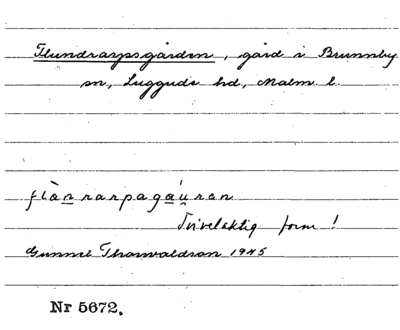 Flundrarpsgården, gård i Brunnby
sn, Luggude hd, Malm. l.
flànrarpagáu̯ren
Tvivelaktig form!
Gunnel Thorwaldson 1945
Nr 5672.